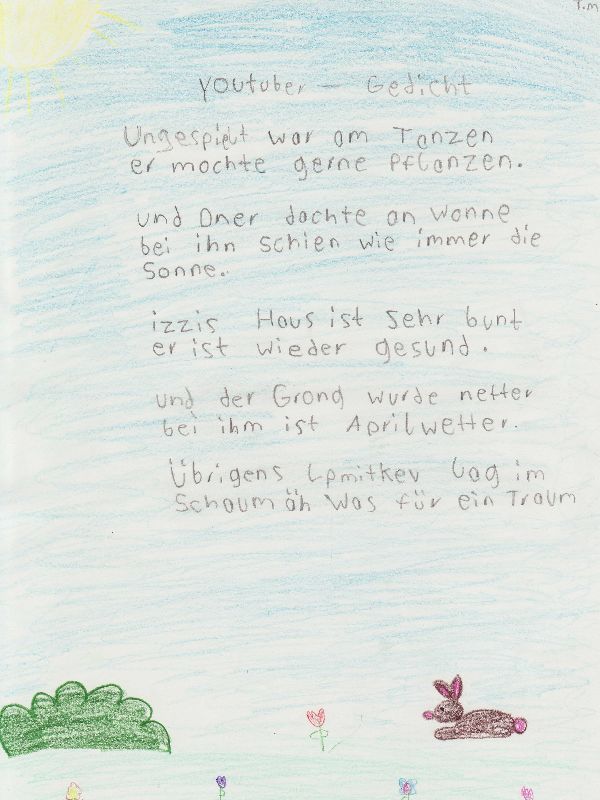 T.m
youtuber – Gedicht
Ungespielt war am Tanzen
er mochte gerne Pflanzen.
und Dner dachte an Wonne
bei ihn schien wie immer die
Sonne.
izzis Haus ist sehr bunt
er ist wieder gesund.
und der Grong wurde netter
bei ihm ist Aprilwetter.
Übrigens Lpmitkev lag im
Schaum äh was für ein Traum